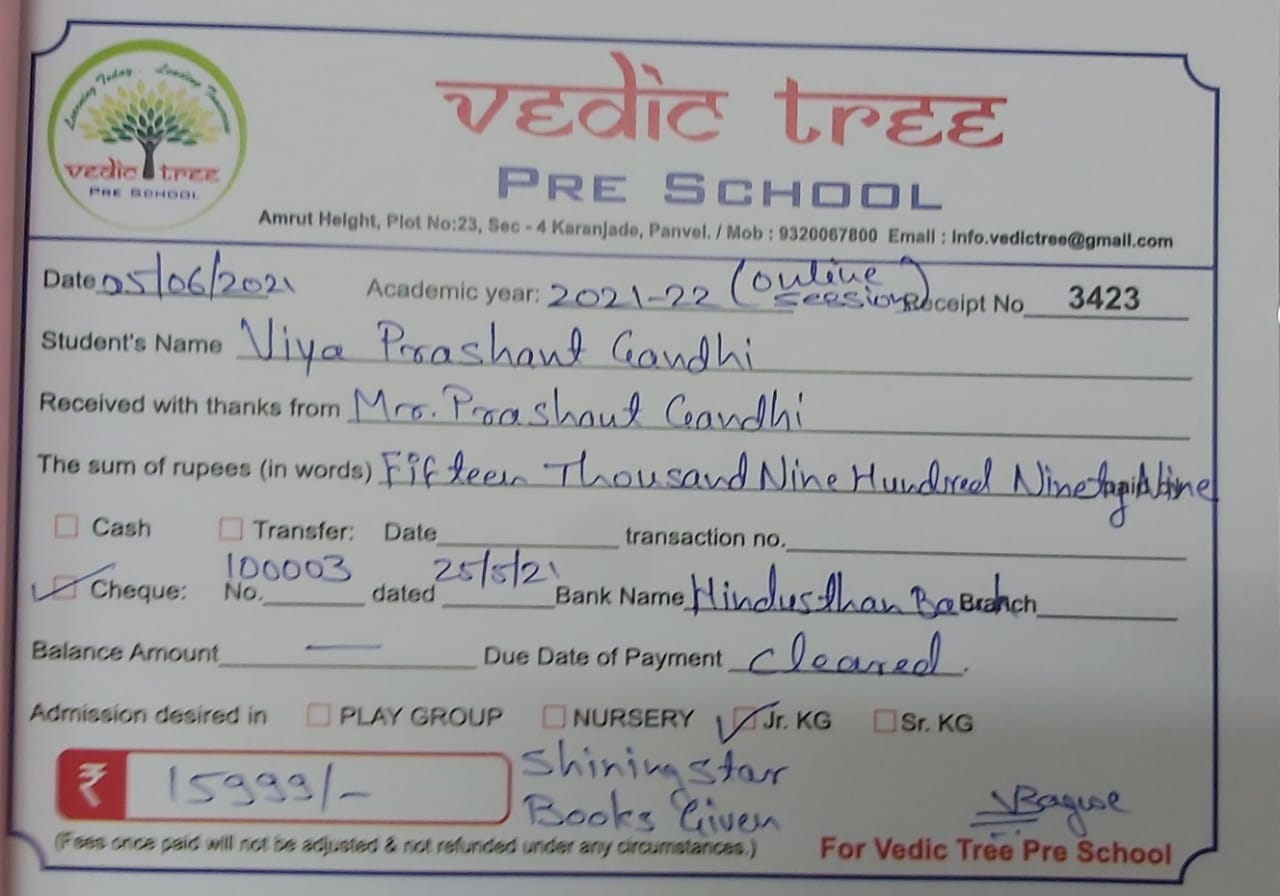 Learning Today... Leading Tomorrow
vedic tree
PRE SCHOOL
vedic tree
PRE SCHOOL
Amrut Height, Plot No:23, Sec - 4 Karanjade, Panvel. / Mob : 9320067800 Email : Info.vedictree@gmail.com
Date 05/06/2021 Academic year: 2021-22 (online session) Receipt No 3423
Student's Name Viya Prashant Gandhi
Received with thanks from Mr. Prashant Gandhi
The sum of rupees (in words) Fifteen Thousand Nine Hundred Ninety Nine
Cash Transfer: Date transaction no.
Cheque: No. 100003 dated 25/5/21 Bank Name Hindusthan Branch
Balance Amount — Due Date of Payment Cleared.
Admission desired in PLAY GROUP NURSERY Jr. KG Sr. KG
₹ 15999/- Shining star
Books Given
(Fees once paid will not be adjusted & not refunded under any circumstances.) For Vedic Tree Pre School